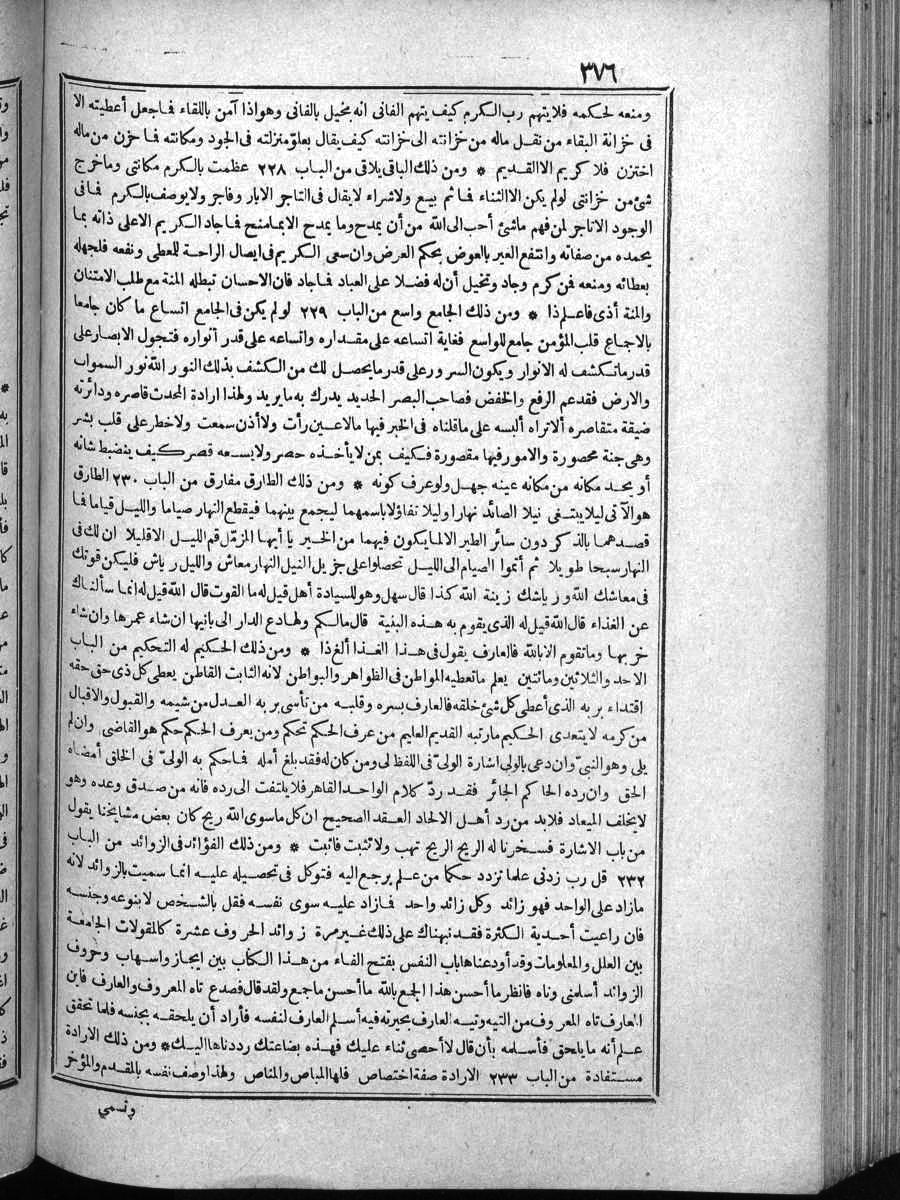 ٣٧٦
ومنعه لحكمه فلا يتهم رب الكرم كيف يتهم الفانى انه بخيل بالفانى وهو اذا آمن باللقاء فما جعل أعطيته الا
فى خزانة البقاء من نقل ماله من خزانته الى خزانته كيف يقال بعلو منزلته فى الجود ومكانته فما خزن من ماله
اختزن فلا كريم الا القديم * ومن ذلك الباقى يلاقى من الباب ٢٢٨ عظمت بالكرم مكانتى وما خرج
شئ من خزانتى لولم يكن الا الثناء فما ثم بيع ولا شراء لا يقال فى التاجر الا بار وفاجر ولا يوصف بالكرم فما فى
الوجود الا تاجر لمن فهم ماشئ أحب الى الله من أن يمدح وما يمدح الا بما منح فما جاد الكريم الاعلى ذاته بما
يحمده من صفاته وانتفع الغير بالعوض بحكم العرض وان سعى الكريم فى ايصال الراحة للمعطى ونفعه فلجهله
بعطائه ومنعه فمن كرم وجاد وتخيل أن له فضلا على العباد فما جاد فان الاحسان تبطله المنة مع طلب الامتنان
والمنة أذى فاعلم ذا * ومن ذلك الجامع واسع من الباب ٢٢٩ لولم يكن فى الجامع اتساع ما كان جامعا
بالاجماع قلب المؤمن جامع للواسع فغاية اتساعه على مقداره واتساعه على قدر أنواره فتجول الابصار على
قدر ما تكشف له الانوار ويكون السرور على قدر ما يحصل لك من الكشف بذلك النور الله نور السموات
والارض فقد عم الرفع والخفض فصاحب البصر الحديد يدرك به ما يريد ولهذا ارادة المحدث قاصره ودائرته
ضيقة متقاصره ألا تراه ألبسه على ما قلناه فى الخبر فيها مالا عين رأت ولا أذن سمعت ولا خطر على قلب بشر
وهى جنة محصورة والامور فيها مقصورة فكيف بمن لا يأخذه حصر ولا يسعه قصر كيف ينضبط شانه
أو يحد مكانه من مكانه عينه جهل ولو عرف كونه * ومن ذلك الطارق مفارق من الباب ٢٣٠ الطارق
هو الآتى ليلا يبتغى نيلا الصائد نهارا وليلا تفاؤلا باسمهما ليجمع بينهما فيقطع النهار صياما والليل قياما فما
قصدهما بالذكر دون سائر الطير الا لما يكون فيهما من الخير يا أيها المزمّل قم الليل الا قليلا ان لك فى
النهار سبحا طويلا ثم أتموا الصيام الى الليل تحصلوا على جزيل النيل النهار معاش والليل رياش فليكن قوتك
فى معاشك الله ورياشك زينة الله كذا قال سهل وهو للسيادة أهل قيل له ما القوت قال الله قيل له انما سألناك
عن الغذاء قال الله قيل له الذى يقوم به هذه البنية قال مالكم ولها دع الدار الى بانيها ان شاء عمرها وان شاء
خربها وما تقوم الا بالله فالعارف يقول فى هذا الغذا ألغ ذا * ومن ذلك الحكيم له التحكيم من الباب
الاحد والثلاثين ومائتين يعلم ما تعطيه المواطن فى الظواهر والبواطن لانه الثابت القاطن يعطى كل ذى حق حقه
اقتداء بربه الذى أعطى كل شئ خلقه فالعارف بسره وقلبه من تأسى بربه العدل من شيمه والقبول والاقبال
من كرمه لا يتعدى الحكيم ما رتبه القديم العليم من عرف الحكم تحكم ومن يعرف الحكم حكم هو القاضى وان لم
يلى وهو النبىّ وان دعى بالولى اشارة الولىّ فى اللفظ لى ومن كان له فقد بلغ أمله فما حكم به الولىّ فى الخلق أمضاه
الحق وان رده الحاكم الجائر فقد ردّ كلام الواحد القاهر فلا يلتفت الى رده فانه من صدق وعده وهو
لا يخلف الميعاد فلا بد من رد أهل الالحاد العقد الصحيح ان كل ماسوى الله ريح كان بعض مشايخنا يقول
من باب الاشارة فسخرنا له الريح الريح تهب ولا تثبت فاثبت * ومن ذلك الفؤائد فى الزوائد من الباب
٢٣٢ قل رب زدنى علما تزدد حكما من علم يرجع اليه فتوكل فى تحصيله عليه انما سميت بالزوائد لانه
مازاد على الواحد فهو زائد وكل زائد واحد فما زاد عليه سوى نفسه فقل بالشخص لا بنوعه وجنسه
فان راعيت أحدية الكثرة فقد نبهناك على ذلك غير مرة زوائد الحروف عشرة كالمقولات الجامعة
بين العلل والمعلومات وقد أودعناها باب النفس بفتح الفاء من هذا الكتاب بين ايجاز واسهاب وحروف
الزوائد أسلمنى وتاه فانظر ما أحسن هذا الجمع بالله ما أحسن ما جمع ولقد قال فصدع تاه المعروف والعارف فاين
العارف تاه المعروف من التيه وتيه العارف بحيرته فيه أسلم العارف لنفسه فأراد أن يلحقه بجنسه فلما تحقق
علم أنه ما يلحق فأسلمه بأن قال لا أحصى ثناء عليك فهذه بضاعتك رددناها اليك * ومن ذلك الارادة
مستفادة من الباب ٢٣٣ الارادة صفة اختصاص فلها المباص والمناص ولهذا وصف نفسه بالمقدم والمؤخر
وتسمى